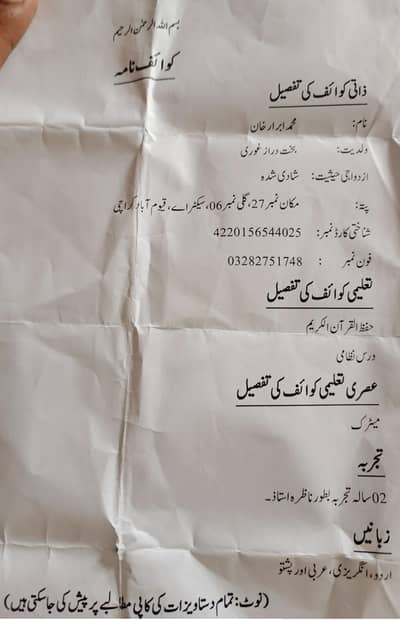 بسم اللہ الرحمٰن الرحیم
کوائف نامہ
ذاتی کوائف کی تفصیل
نام: محمد ابرار خان
ولدیت: بخت دراز غوری
ازدواجی حیثیت: شادی شدہ
پتہ: مکان نمبر 27، گلی نمبر 06، سیکٹر اے، قیوم آباد کراچی
شناختی کارڈ نمبر: 4220156544025
فون نمبر : 03282751748
تعلیمی کوائف کی تفصیل
حفظ القرآن الکریم
درس نظامی
عصری تعلیمی کوائف کی تفصیل
میٹرک
تجربہ
02 سالہ تجربہ بطور ناظرہ استاذ۔
زبانیں
اردو، انگریزی، عربی اور پشتو
(نوٹ: تمام دستاویزات کی کاپی مطالبے پر پیش کی جاسکتی ہیں)